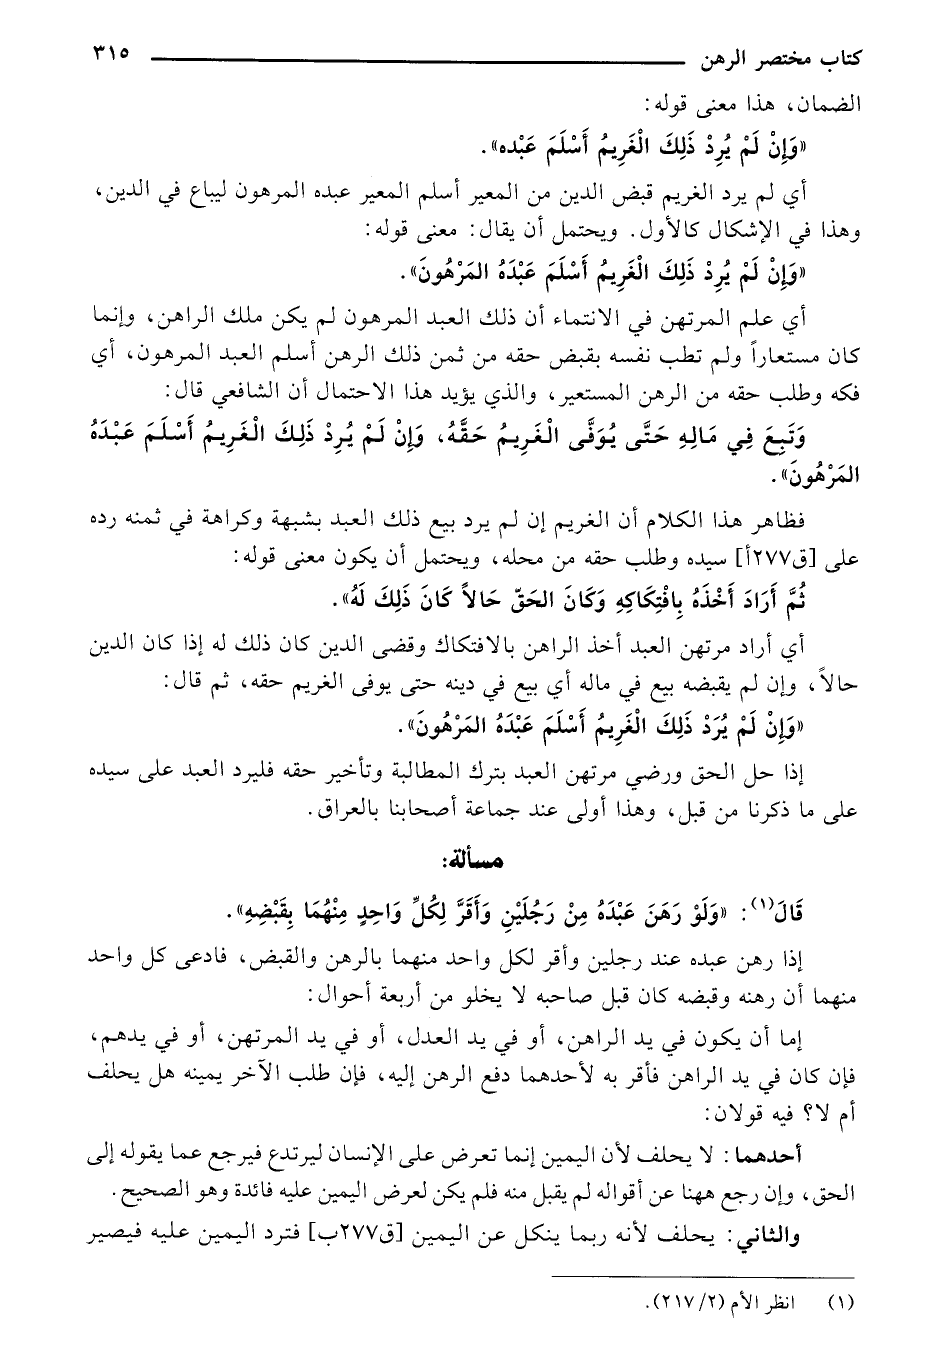 كتاب مختصر الرهن ٣١٥
الضمان، هذا معنى قوله:
«وَإِنْ لَمْ يُرِدْ ذَلِكَ الْغَرِيمُ أَسْلَمَ عَبْدَه».
أي لم يرد الغريم قبض الدين من المعير أسلم المعير عبده المرهون ليباع في الدين،
وهذا في الإشكال كالأول. ويحتمل أن يقال: معنى قوله:
«وَإِنْ لَمْ يُرِدْ ذَلِكَ الْغَرِيمُ أَسْلَمَ عَبْدَهُ المَرْهُونَ».
أي علم المرتهن في الانتماء أن ذلك العبد المرهون لم يكن ملك الراهن، وإنما
كان مستعاراً ولم تطب نفسه بقبض حقه من ثمن ذلك الرهن أسلم العبد المرهون، أي
فكه وطلب حقه من الرهن المستعير، والذي يؤيد هذا الاحتمال أن الشافعي قال:
وَتَبِعَ فِي مَالِهِ حَتَّى يُوَفَّى الْغَرِيمُ حَقَّهُ، وَإِنْ لَمْ يُرِدْ ذَلِكَ الْغَرِيمُ أَسْلَمَ عَبْدَهُ
المَرْهُونَ».
فظاهر هذا الكلام أن الغريم إن لم يرد بيع ذلك العبد بشبهة وكراهة في ثمنه رده
على [ق٢٧٧أ] سيده وطلب حقه من محله، ويحتمل أن يكون معنى قوله:
ثُمَّ أَرَادَ أَخْذَهُ بِافْتِكَاكِهِ وَكَانَ الحَقّ حَالاً كَانَ ذَلِكَ لَهُ».
أي أراد مرتهن العبد أخذ الراهن بالافتكاك وقضى الدين كان ذلك له إذا كان الدين
حالاً، وإن لم يقبضه بيع في ماله أي بيع في دينه حتى يوفى الغريم حقه، ثم قال:
«وَإِنْ لَمْ يُرَدْ ذَلِكَ الْغَرِيمُ أَسْلَمَ عَبْدَهُ المَرْهُونَ».
إذا حل الحق ورضي مرتهن العبد بترك المطالبة وتأخير حقه فليرد العبد على سيده
على ما ذكرنا من قبل، وهذا أولى عند جماعة أصحابنا بالعراق.
مسألة:
قَالَ(١): «وَلَوْ رَهَنَ عَبْدَهُ مِنْ رَجُلَيْنِ وَأَقَرَّ لِكُلِّ وَاحِدٍ مِنْهُمَا بِقَبْضِهِ».
إذا رهن عبده عند رجلين وأقر لكل واحد منهما بالرهن والقبض، فادعى كل واحد
منهما أن رهنه وقبضه كان قبل صاحبه لا يخلو من أربعة أحوال:
إما أن يكون في يد الراهن، أو في يد العدل، أو في يد المرتهن، أو في يدهم،
فإن كان في يد الراهن فأقر به لأحدهما دفع الرهن إليه، فإن طلب الآخر يمينه هل يحلف
أم لا؟ فيه قولان:
أحدهما: لا يحلف لأن اليمين إنما تعرض على الإنسان ليرتدع فيرجع عما يقوله إلى
الحق، وإن رجع ههنا عن أقواله لم يقبل منه فلم يكن لعرض اليمين عليه فائدة وهو الصحيح.
والثاني: يحلف لأنه ربما ينكل عن اليمين [ق٢٧٧ب] فترد اليمين عليه فيصير
(١) انظر الأم (٢/ ٢١٧).